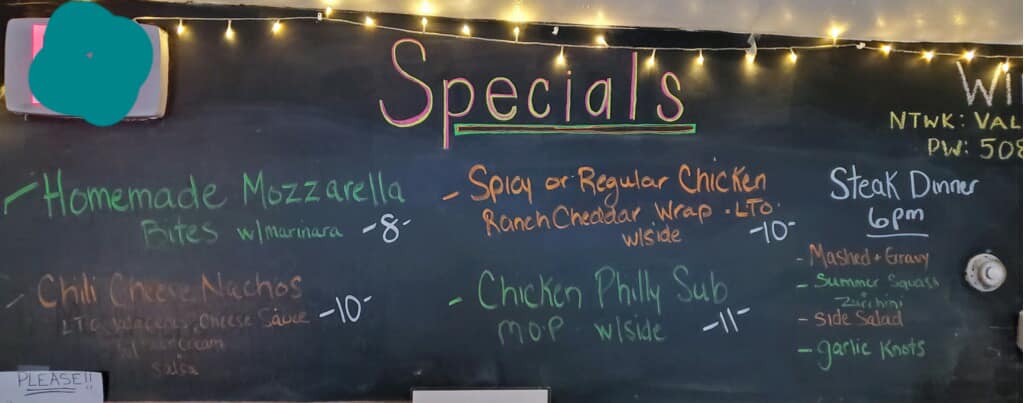 Specials
WI
NTWK: VAL
PW: 508
- Homemade Mozzarella
Bites w/marinara -8-
- Chili Cheese Nachos
LTO, Jalapenos, Cheese Sauce -10-
w/ sour cream
salsa
- Spicy or Regular Chicken
Ranch Cheddar Wrap - LTO.
w/side -10-
- Chicken Philly Sub
M.O.P w/side -11-
Steak Dinner
6pm
- Mashed + Gravy
- Summer Squash
+ Zucchini
- Side Salad
- Garlic Knots
PLEASE!!